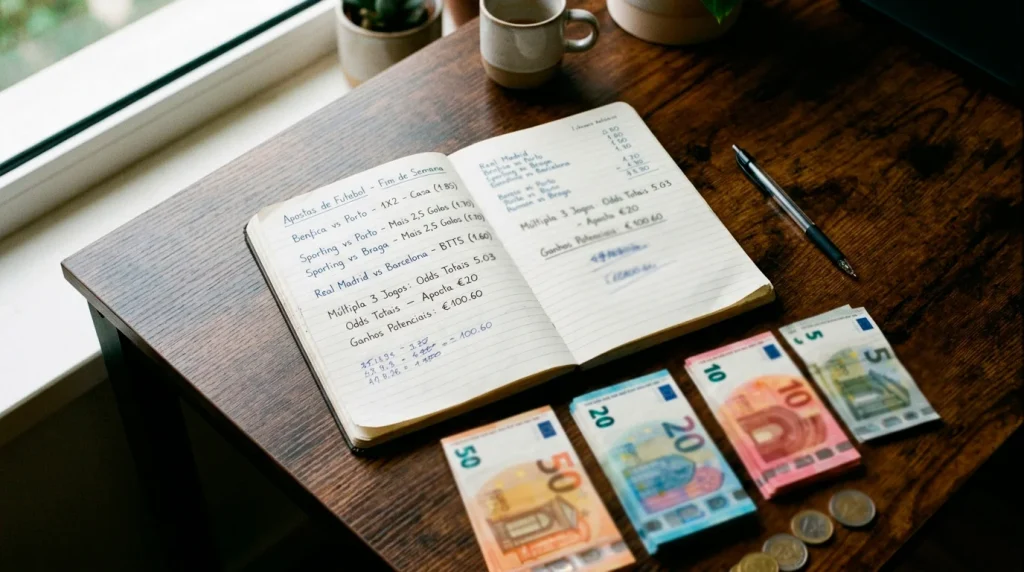 Apostas de Futebol - Fim de Semana
Benfica vs Porto - 1X2 - Casa (1.85)
Sporting vs Porto - Mais 2,5 Golos (1.70)
Sporting vs Braga - Mais 2,5 Golos
Real Madrid vs Barcelona - BTTS (1.60)
Múltipla 3 Jogos: Odds Totais 5.03
Odds Totais — Aposta €20
Ganhos Potenciais: € 100.60
= 100.60
Real Madrid
Benfica vs Porto
Sporting vs Braga
vs Barcelona
vs Porto
vs Braga
Múltipla 3 Jogos: Odds Totais 5.03
- Aposta €20
Ganhos Potenciais: € 100.60
50
50
20
20
10
10
5
5